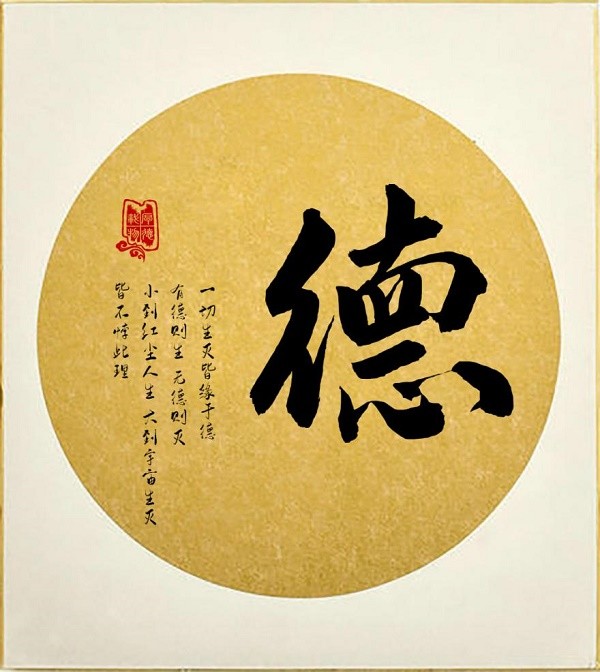 德
一切生灭皆缘于德
有德则生 无德则灭
小到红尘人生 大到宇宙生灭
皆不悖此理
厚德
载物